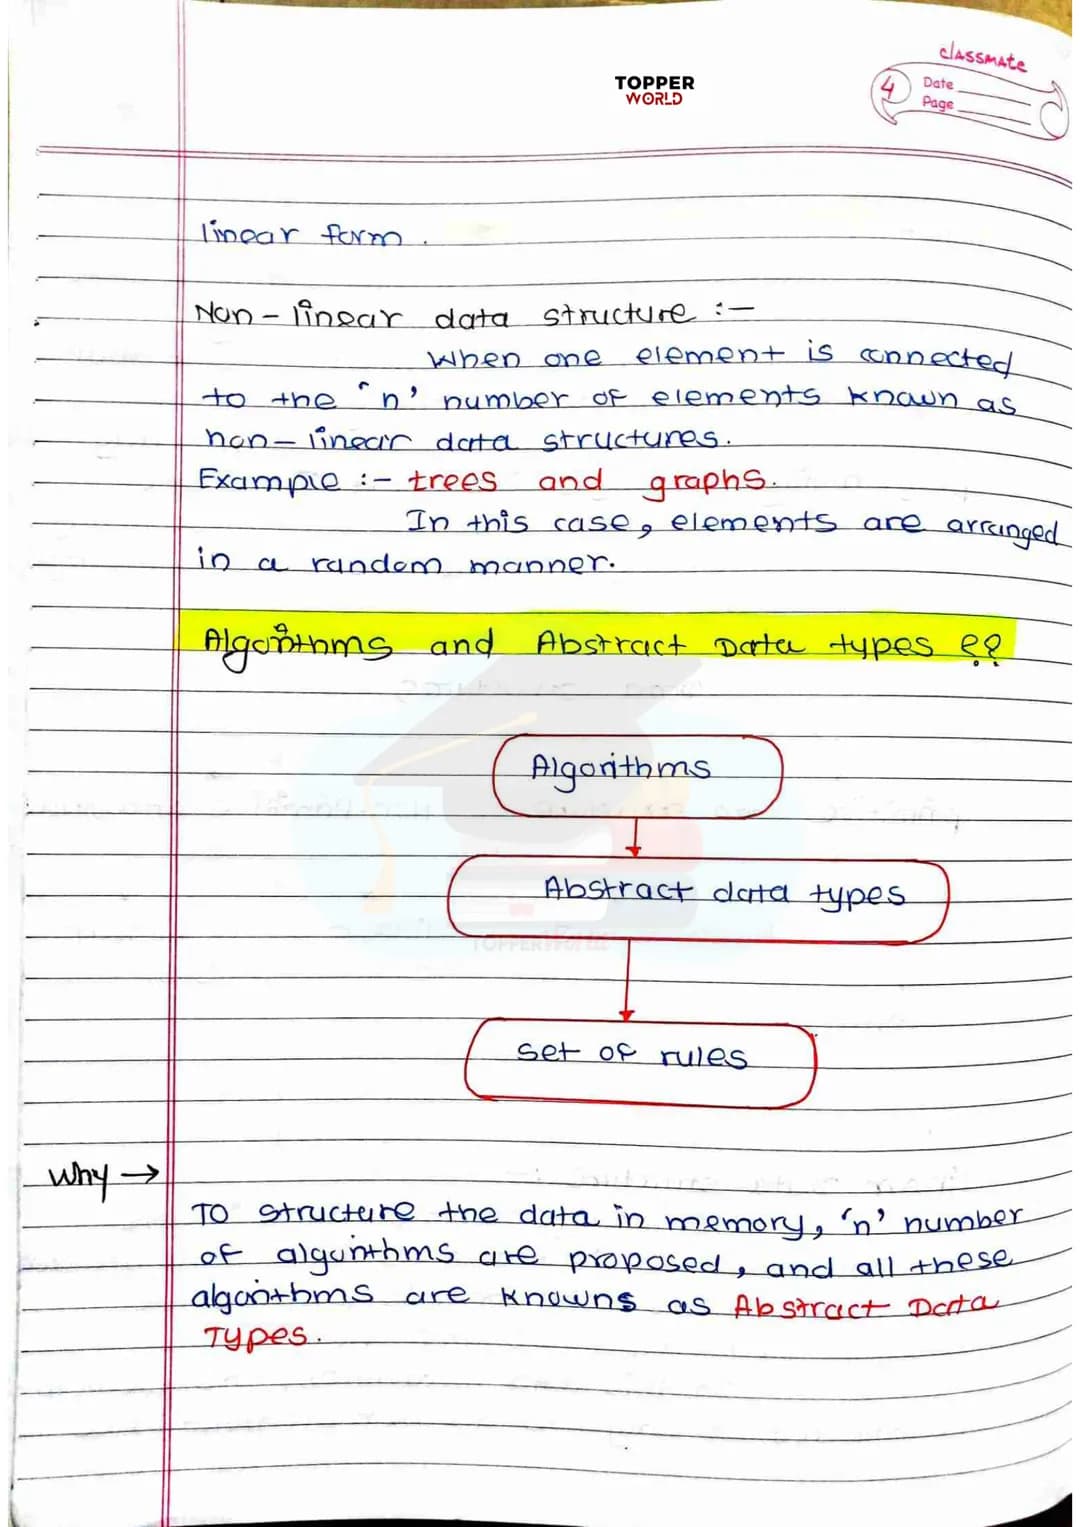 classmate
TOPPER
WORLD
4
Date
Page
linear form.
Non-linear data structure :-
When one element is connected
to the 'n' number of elements known as
non-linear data structures.
Example :- trees and graphs.
In this case, elements are arranged
in a random manner.
Algorithms and Abstract Data types ??
Algorithms
Abstract data types
TOPPERWORLD
set of rules
Why →
To structure the data in memory, 'n' number
of algorithms are proposed, and all these
algorithms are knowns as Abstract Data
Types.